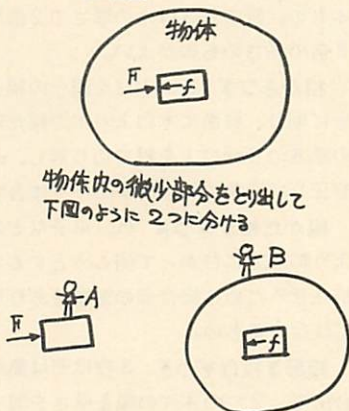 物体
F
f
物体内の微少部分をとり出して
下図のように2つに分ける
B
A
F
f